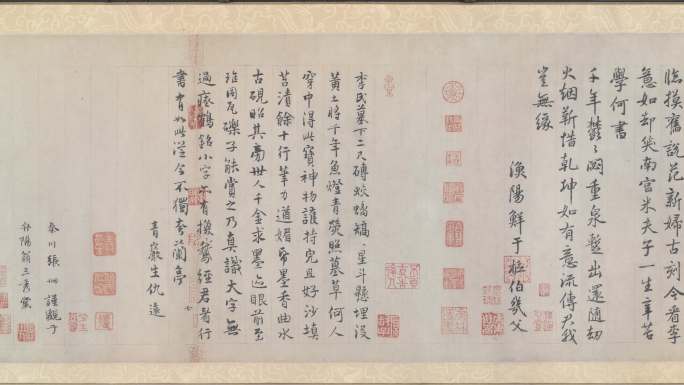 臨摸舊說范新婦古刻今看李
意如却笑南宮米夫子一生辛苦
學何書
千年欝々閟重泉暫出還隨劫
火烟靳惜乾坤如有意流傳君我
豈無緣
漁陽鮮于樞伯幾父
李氏墓下二尺磚蛟螭星斗懸埋沒
黃土將千年魚燈青熒照墓草何人
穿中得此寶神物護持完且好沙填
苔漬餘十行筆力遒媚帶墨香曲水
古硯昭其世人千金求墨迹眼前至
珤同瓦礫子能賞之乃真識大字無
過瘞鶴銘小字亦有換鵞經君看行
書有如此從今不獨夸蘭亭
青巖生仇遠
秦川張謹觀于
弁陽翁之書